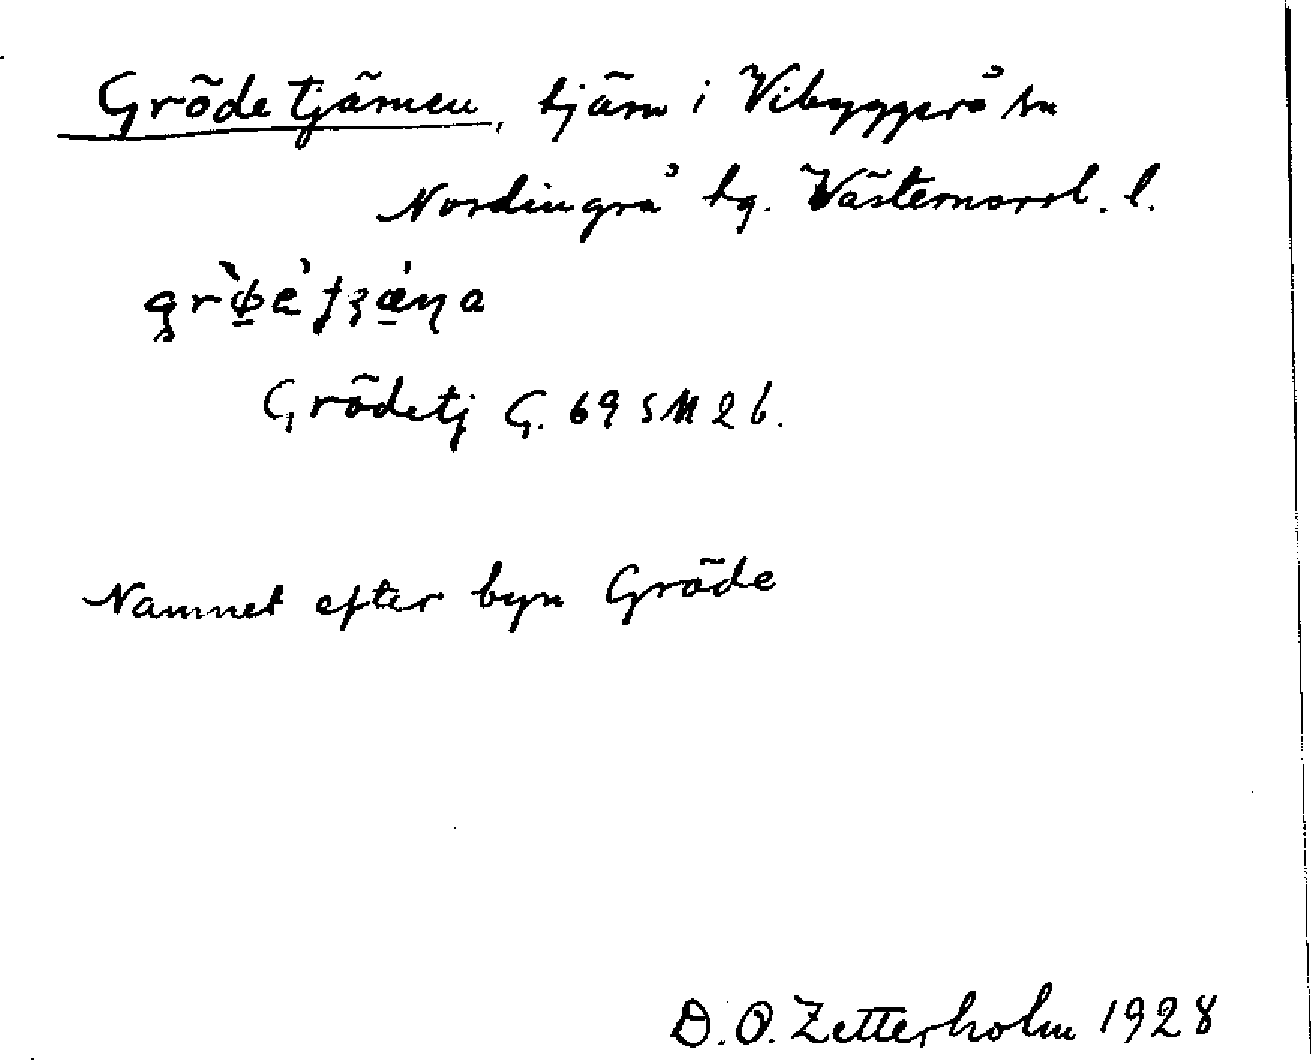 Grödetjärnen, tjärn i Vibyggerå sn
Nordingrå tg. Västernorrl. l.
Grödetj G. 69 SM 26.
Namnet efter byn Gröde
D. O. Zetterholm 1928